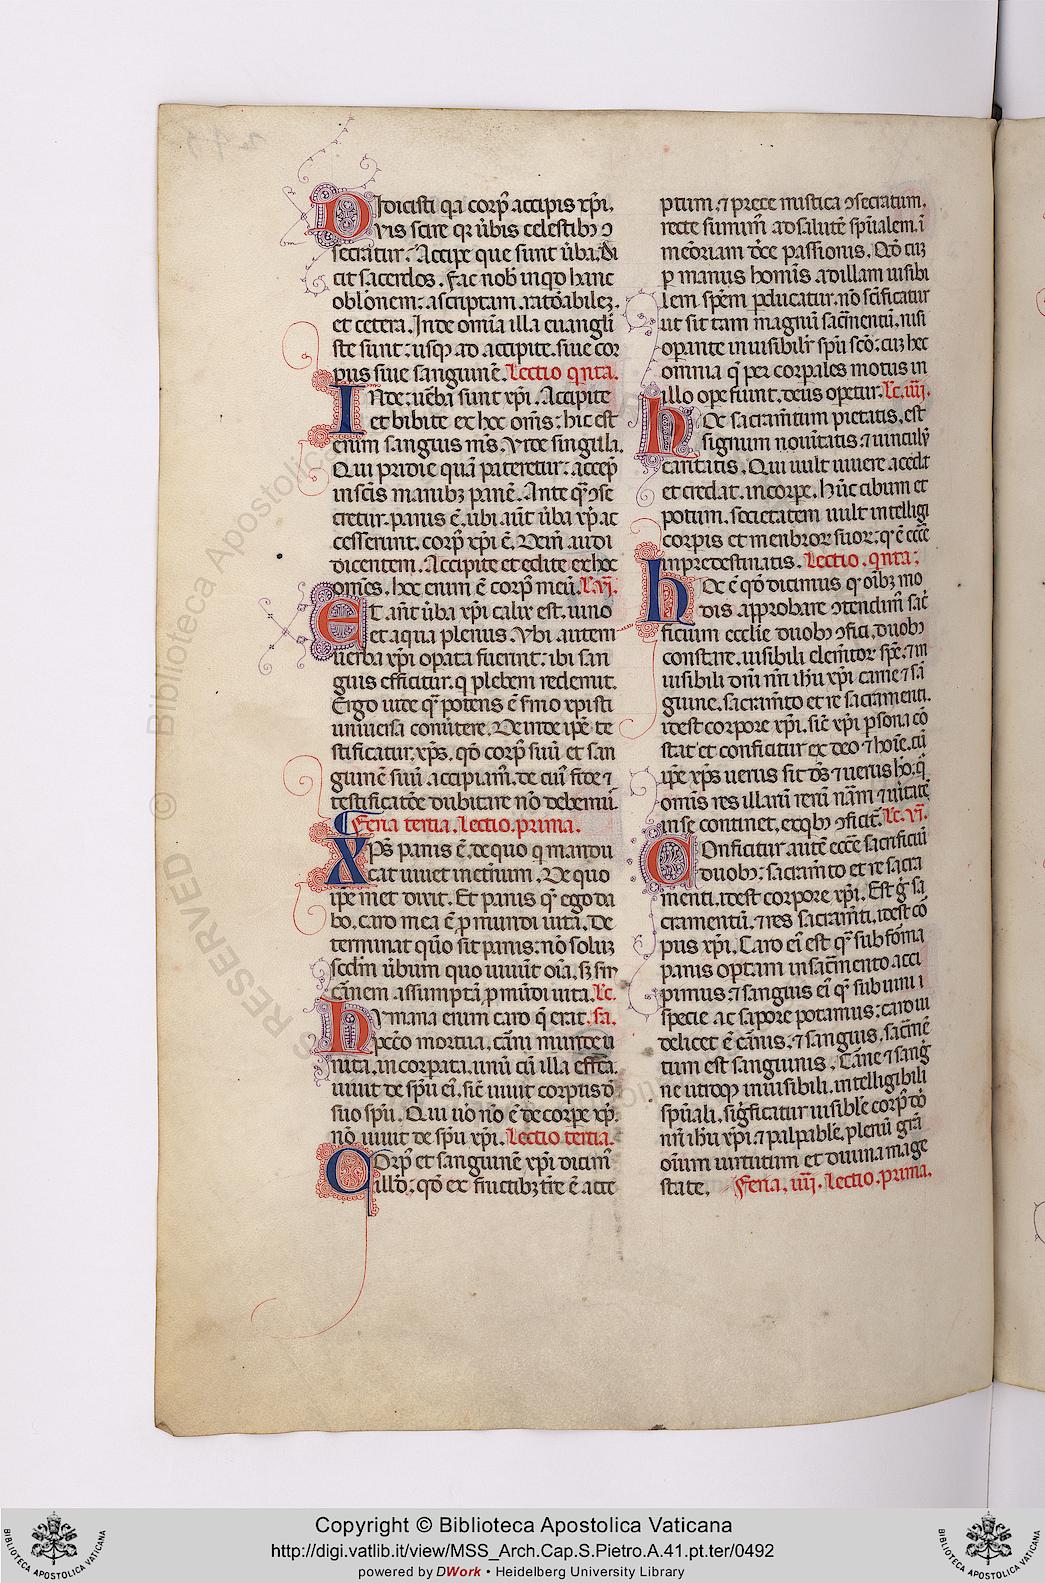 Didicisti qa corp̄ accipis xp̄i,
vis scire qr ūbis celestibȝ ↄ
secratur? Accipe que sunt ūba. Di
cit sacerdos. Fac nob̄ inqͦd hanc
obl̄onem: ascriptam. ratōabilez,
et cetera. Inde omīa illa euangli
ste sunt: usqȝ ad accipite. siue cor
pus siue sanguinē. Lectio qnta.
Inde: ueba sunt xp̄i. Accipite
et bibite ex hoc om̄s: hic est
enim sanguis m̄s. Vide singula.
Qui pridie quā pateretur: accep̄
in sc̄is manibȝ panē. Ante qͣ ↄse
cretur. panis ē. ubi aūt ūba xp̄i ac
cesserunt. corp̄ xp̄i ē. Deniqȝ audi
dicentem. Accipite et edite ex hoc
om̄es. hoc enim ē corp̄ meū. L. vj.
Et an̄t ūba xp̄i calix est. uino
et aqua plenus. Vbi autem
uerba xp̄i opata fuerint: ibi san
guis efficitur. q plebem redemit.
Ergo uide qͣ potens ē s̄mo xpisti
uniuersa conūtere. Deinde ip̄e te
stificatur. xp̄s. qͦd corp̄ suū et san
guinē suū accipiam̄. de cuī fide ⁊
testificatōe dubitare nō debemus.
Feria tertia. Lectio. prima.
Xp̄s panis ē. de quo q mandu
cat uiuet inetnum. De quo
ip̄e met dixit. Et panis qͣ ego da
bo. caro mea ē p mundi uita. De
terminat quō sit panis: nō soluz
scd̄m ūbum quo uiuūt oīa. sȝ scd̄m
cārnem assumptā p mūdi uita. Lc.
Hvmana enim caro q̄ erat. sa.
pcc̄o mortua. cārni munde u
nita. incorpata. unū cū illa effc̄ta.
uiuit de spū eī. sic̄ uiuit corpus d̄
suo spū. Qui uō nō ē de corpe xp̄i
nō uiuit de spū xp̄i. Lectio tertia.
Corp̄ et sanguinē xp̄i dicim̄
illd̄: qͦd ex fructibȝ tr̄e ē acce
ptum. ⁊ prece mistica ↄsecratum.
recte sumim̄ ad salutē spūalem. ī
memoriam dn̄ice passionis. Qͦd cuȝ
p manus hominis ad illam uisibi
lem spēm pducatur. nō sc̄ificatur
ut sit tam magnū sacm̄entū. nisi
opante inuisibilī spū sc̄o: cuȝ hec
omnia qͣ per corpales motus in
illo ope fiunt. deus opetur. Lc. iiij.
Hoc sacram̄tum pietatis. est
signum nouitatis ⁊ uinculū
caritatis. Qui uult uiuere accedat
et credat. incorpe. hūc cibum et
potum. societatem uult intelligi
corpis et menbrorum suorum: qͦ ē ecc̄e
inpredestinatis. Lectio. qnta:
Hoc ē qͦd dicimus qͦ oībȝ mo
dis. approbare ↄtendim̄ sac̄
ficium ecclīe duobȝ ↄfici. duobȝ
constare. uisibili elem̄tor spe. ⁊ in
uisibili dn̄i nr̄i ih̄u xp̄i carne ⁊ sā
guine. sacramēto et re sacramenti.
idest corpore xp̄i. sic̄ xp̄i psona cō
stat et conficitur ex deo ⁊ hoīe. cū
ip̄e xp̄s uerus sit d̄s ⁊ uerus hō: qͣ
omīs res illarū rerū nām ⁊ uītatē
inse continet. exqbȝ ↄficit. Lc. vj.
Conficitur autē ecc̄e sacrificiū
duobȝ: sacram̄to et re sacra
menti. idest corpore xp̄i. Est ḡ sa
cramentū. ⁊ res sacram̄ti. idest cō
pus xp̄i. Caro eī est qͣ sub fōma
panis optam insacm̄ento acci
pimus: ⁊ sanguis eī qͣ sub uini ī
specie ac sapore potamus: caro ui
delicet ē cārnis. ⁊ sanguis. sacm̄e
tum est sanguinis. Cārne ⁊ sangͥ
ne utroqȝ inuisibili. intelligibili
spūali. significatur uisibile corp̄ d̄i
nr̄i ih̄u xp̄i ⁊ palpabile. plenū grā
oīum uirtutum et diuina mage
state. Feria. iiij. Lectio. prima.
© Biblioteca Apostolica
RESERVED
Copyright © Biblioteca Apostolica Vaticana
http://digi.vatlib.it/view/MSS_Arch.Cap.S.Pietro.A.41.pt.ter/0492
powered by DWork • Heidelberg University Library
BIBLIOTECA APOSTOLICA VATICANA
BIBLIOTECA APOSTOLICA VATICANA